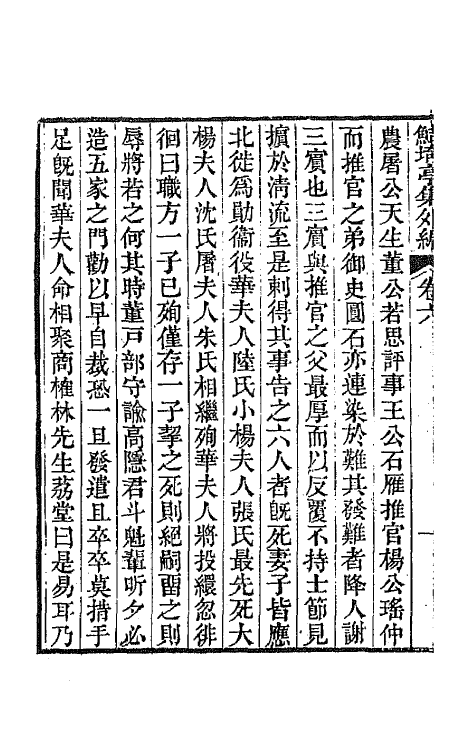 鮚埼亭集外編 卷六 一
農屠公天生董公若思評事王公石雁推官楊公瑤仲
而推官之弟御史圓石亦連染於難其發難者降人謝
三賓也三賓與推官之父最厚而以反覆不持士節見
擯於清流至是刺得其事告之六人者旣死妻子皆應
北徙爲勛衞役華夫人陸氏小楊夫人張氏最先死大
楊夫人沈氏屠夫人朱氏相繼殉華夫人將投繯忽徘
徊曰職方一子已殉僅存一子挈之死則絕嗣畱之則
辱將若之何其時董戸部守諭高隱君斗魁輩聽夕必
造五家之門勸以早自裁恐一旦發遣且卒卒莫措手
足旣聞華夫人命相聚商榷林先生荔堂曰是易耳乃